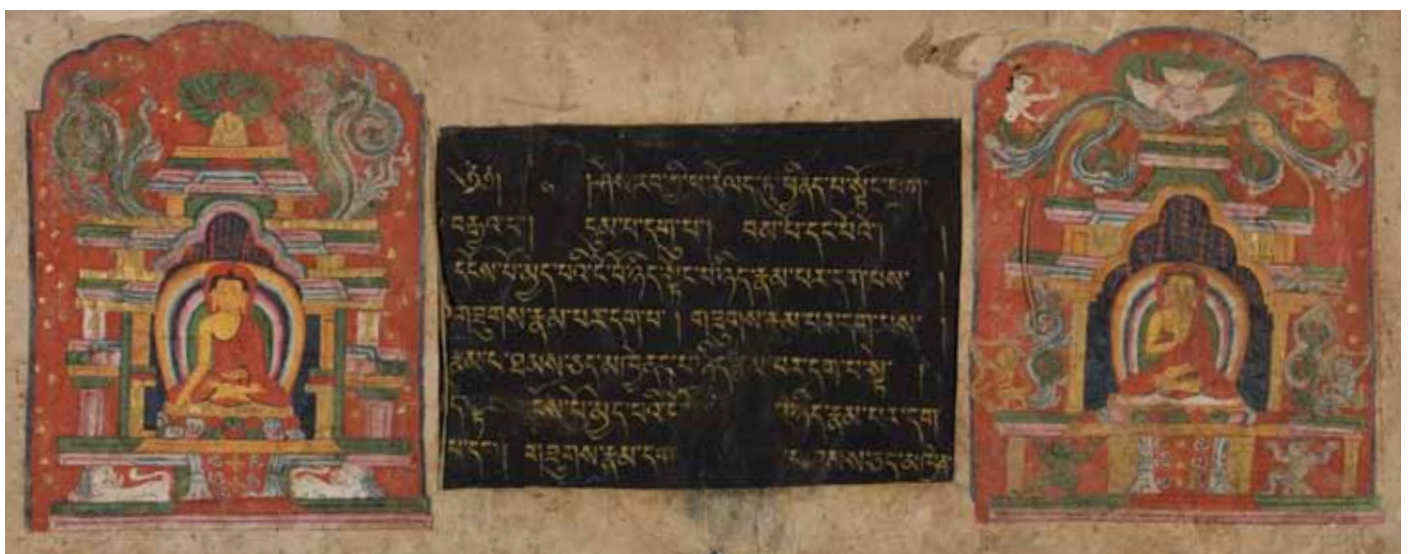 ཤེས་རབ་ཀྱི་ཕ་རོལད་ཏུ་ཕྱིནད་པ་སྟོང་ཕྲག་
བརྒྱའ་པ།། དུམ་པ་དགུ་པ།། བམ་པོ་དང་པོའོ།
དངོས་པོ་མྱེད་པའི་ངོ་བོ་ཉིད་སྟོང་པ་ཉིད་རྣམ་པར་དག་པས་
གཟུགས་རྣམ་པར་དག་པ། གཟུགས་རྣམ་པར་དག་པས་
རྣམ་པ་ཐམས་ཅད་མཁྱེནད་པ་ཉིད་རྣམ་པར་དག་པ་སྟེ
དངོས་པོ་མྱེད་པའི་ངོ་ ཉིད་རྣམ་པར་དག
པ་དང་། གཟུགས་རྣམ་དག ཐམས་ཅད་མཁྱེན